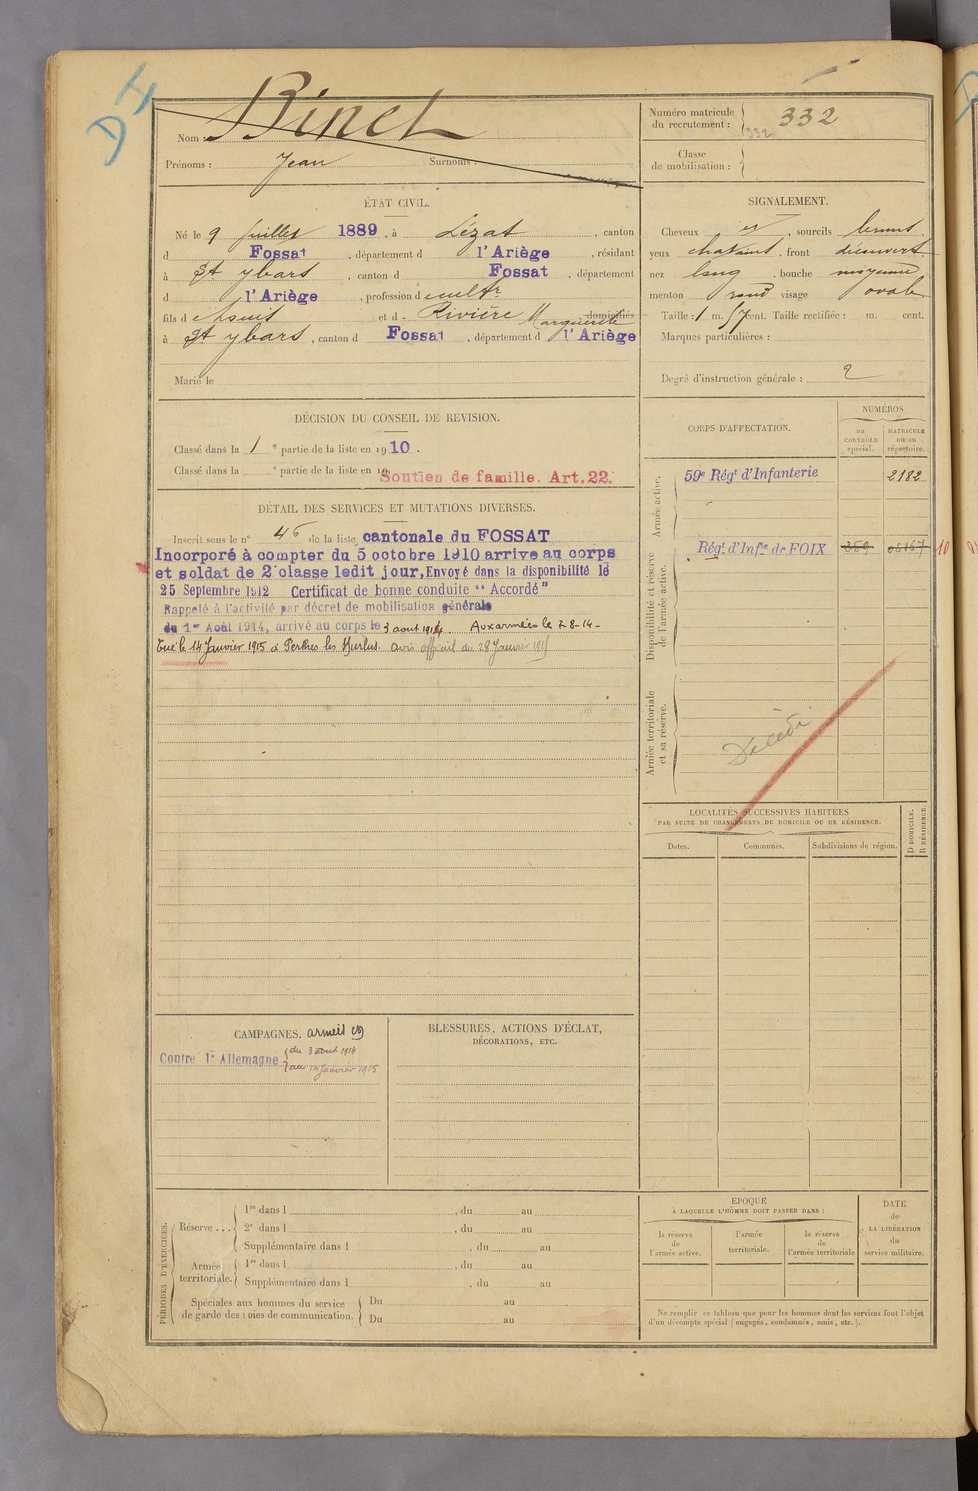 DH
Nom : Binet
Prénoms : Jean Surnoms :
Numéro matricule
du recrutement : 332
332
Classe
de mobilisation :
ÉTAT CIVIL.
Né le 9 juillet 1889, à Lézat, canton
d Fossat, département d l'Ariège, résidant
à St ybars, canton d Fossat, département
d l'Ariège, profession d cultr
fils d et d Rivière Marguerite domiciliés
à St ybars, canton d Fossat, département d l'Ariège
Marié le
SIGNALEMENT.
Cheveux et, sourcils bruns,
yeux chatains, front découvert
nez long, bouche moyenne
menton rond visage ovale
Taille : 1 m. 57 cent. Taille rectifiée : m. cent.
Marques particulières :
Degré d'instruction générale : 2
DÉCISION DU CONSEIL DE REVISION.
Classé dans la 1 e partie de la liste en 1910.
Classé dans la e partie de la liste en 19
Soutien de famille. Art. 22.
DÉTAIL DES SERVICES ET MUTATIONS DIVERSES.
Inscrit sous le n° 46 de la liste cantonale du FOSSAT
Incorporé à compter du 5 octobre 1910 arrive au corps
et soldat de 2e classe ledit jour, Envoyé dans la disponibilité le
25 Septembre 1912 Certificat de bonne conduite "Accordé"
Rappelé à l'activité par décret de mobilisation générale
du 1er Août 1914, arrivé au corps le 3 aout 1914. Aux armées le 7-8-14-
tué le 14 Janvier 1915 à Perthes les Hurlus. avis officiel du 28 Janvier 1915
CORPS D'AFFECTATION.
NUMÉROS
au
CONTRÔLE
spécial.
MATRICULE
ou au
répertoire.
Armée active.
59e Régt d'Infanterie 2182
Disponibilité et réserve
de l'armée active.
Régt d'Infie de FOIX 359 05167 10
Armée territoriale
et sa réserve.
Décédé
LOCALITÉS SUCCESSIVES HABITÉES
PAR SUITE DE CHANGEMENTS DE DOMICILE OU DE RÉSIDENCE.
Dates. Communes. Subdivisions de région.
D DOMICILE.
R RÉSIDENCE.
CAMPAGNES.
Contre l'Allemagne
du 3 aout 1914
au 14 Janvier 1915
BLESSURES, ACTIONS D'ÉCLAT,
DÉCORATIONS, ETC.
PÉRIODES D'EXERCICES.
Réserve ...
1re dans l , du au
2e dans l , du au
Supplémentaire dans l , du au
Armée
territoriale.
1re dans l , du au
Supplémentaire dans l , du au
Spéciales aux hommes du service
de garde des voies de communication.
Du au
Du au
EPOQUE
À LAQUELLE L'HOMME DOIT PASSER DANS :
la réserve
de
l'armée active.
l'armée
territoriale.
la réserve
de
l'armée territoriale
DATE
de
LA LIBÉRATION
du
service militaire.
Ne remplir ce tableau que pour les hommes dont les services font l'objet
d'un décompte spécial (engagés, condamnés, omis, etc.).